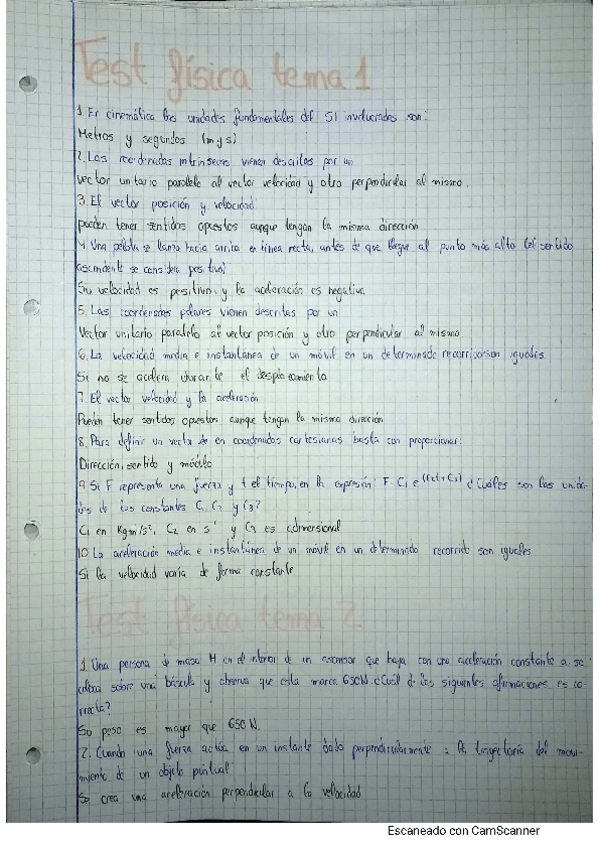 Test física tema 1
1. En cinemática las unidades fundamentales del SI involucradas son:
Metros y segundos (m y s)
2. Las coordenadas intrínsecas vienen descritas por un
vector unitario paralelo al vector velocidad y otro perpendicular al mismo.
3. El vector posición y velocidad:
pueden tener sentidos opuestos aunque tengan la misma dirección
4. Una pelota se llanza hacia arriba en línea recta, antes de que llegue al punto más alto (el sentido
ascendente se considera positivo)
Su velocidad es positiva y la aceleración es negativa
5. Las coordenadas polares vienen descritas por un
Vector unitario paralelo al vector posición y otro perpendicular al mismo
6. La velocidad media e instantánea de un móvil en un determinado recorrido son iguales
Si no se acelera durante el desplazamiento
7. El vector velocidad y la aceleración
Pueden tener sentidos opuestos aunque tengan la misma dirección
8. Para definir un vector de en coordenadas cartesianas basta con proporcionar:
Dirección, sentido y módulo
9. Si F representa una fuerza y t el tiempo, en la expresión F= C1 e ¿Cuáles son las unida-
des de las constantes C1 C2 y C3?
C1 en Kg m/s², C2 en s⁻¹ y C3 es adimensional
10. La aceleración media e instantánea de un móvil en un determinado recorrido son iguales
Si la velocidad varía de forma constante
Test física tema 2.
1. Una persona de masa M en el interior de un ascensor que baja con una aceleración constante a se
coloca sobre una báscula y observa que esta marca 650N. ¿Cuál de las siguientes afirmaciones es co-
rrecta?
Su peso es mayor que 650 N.
2. Cuando una fuerza actúa en un instante dado perpendicularmente a la trayectoria del movi-
miento de un objeto puntual
Se crea una aceleración perpendicular a la velocidad
Escaneado con CamScanner